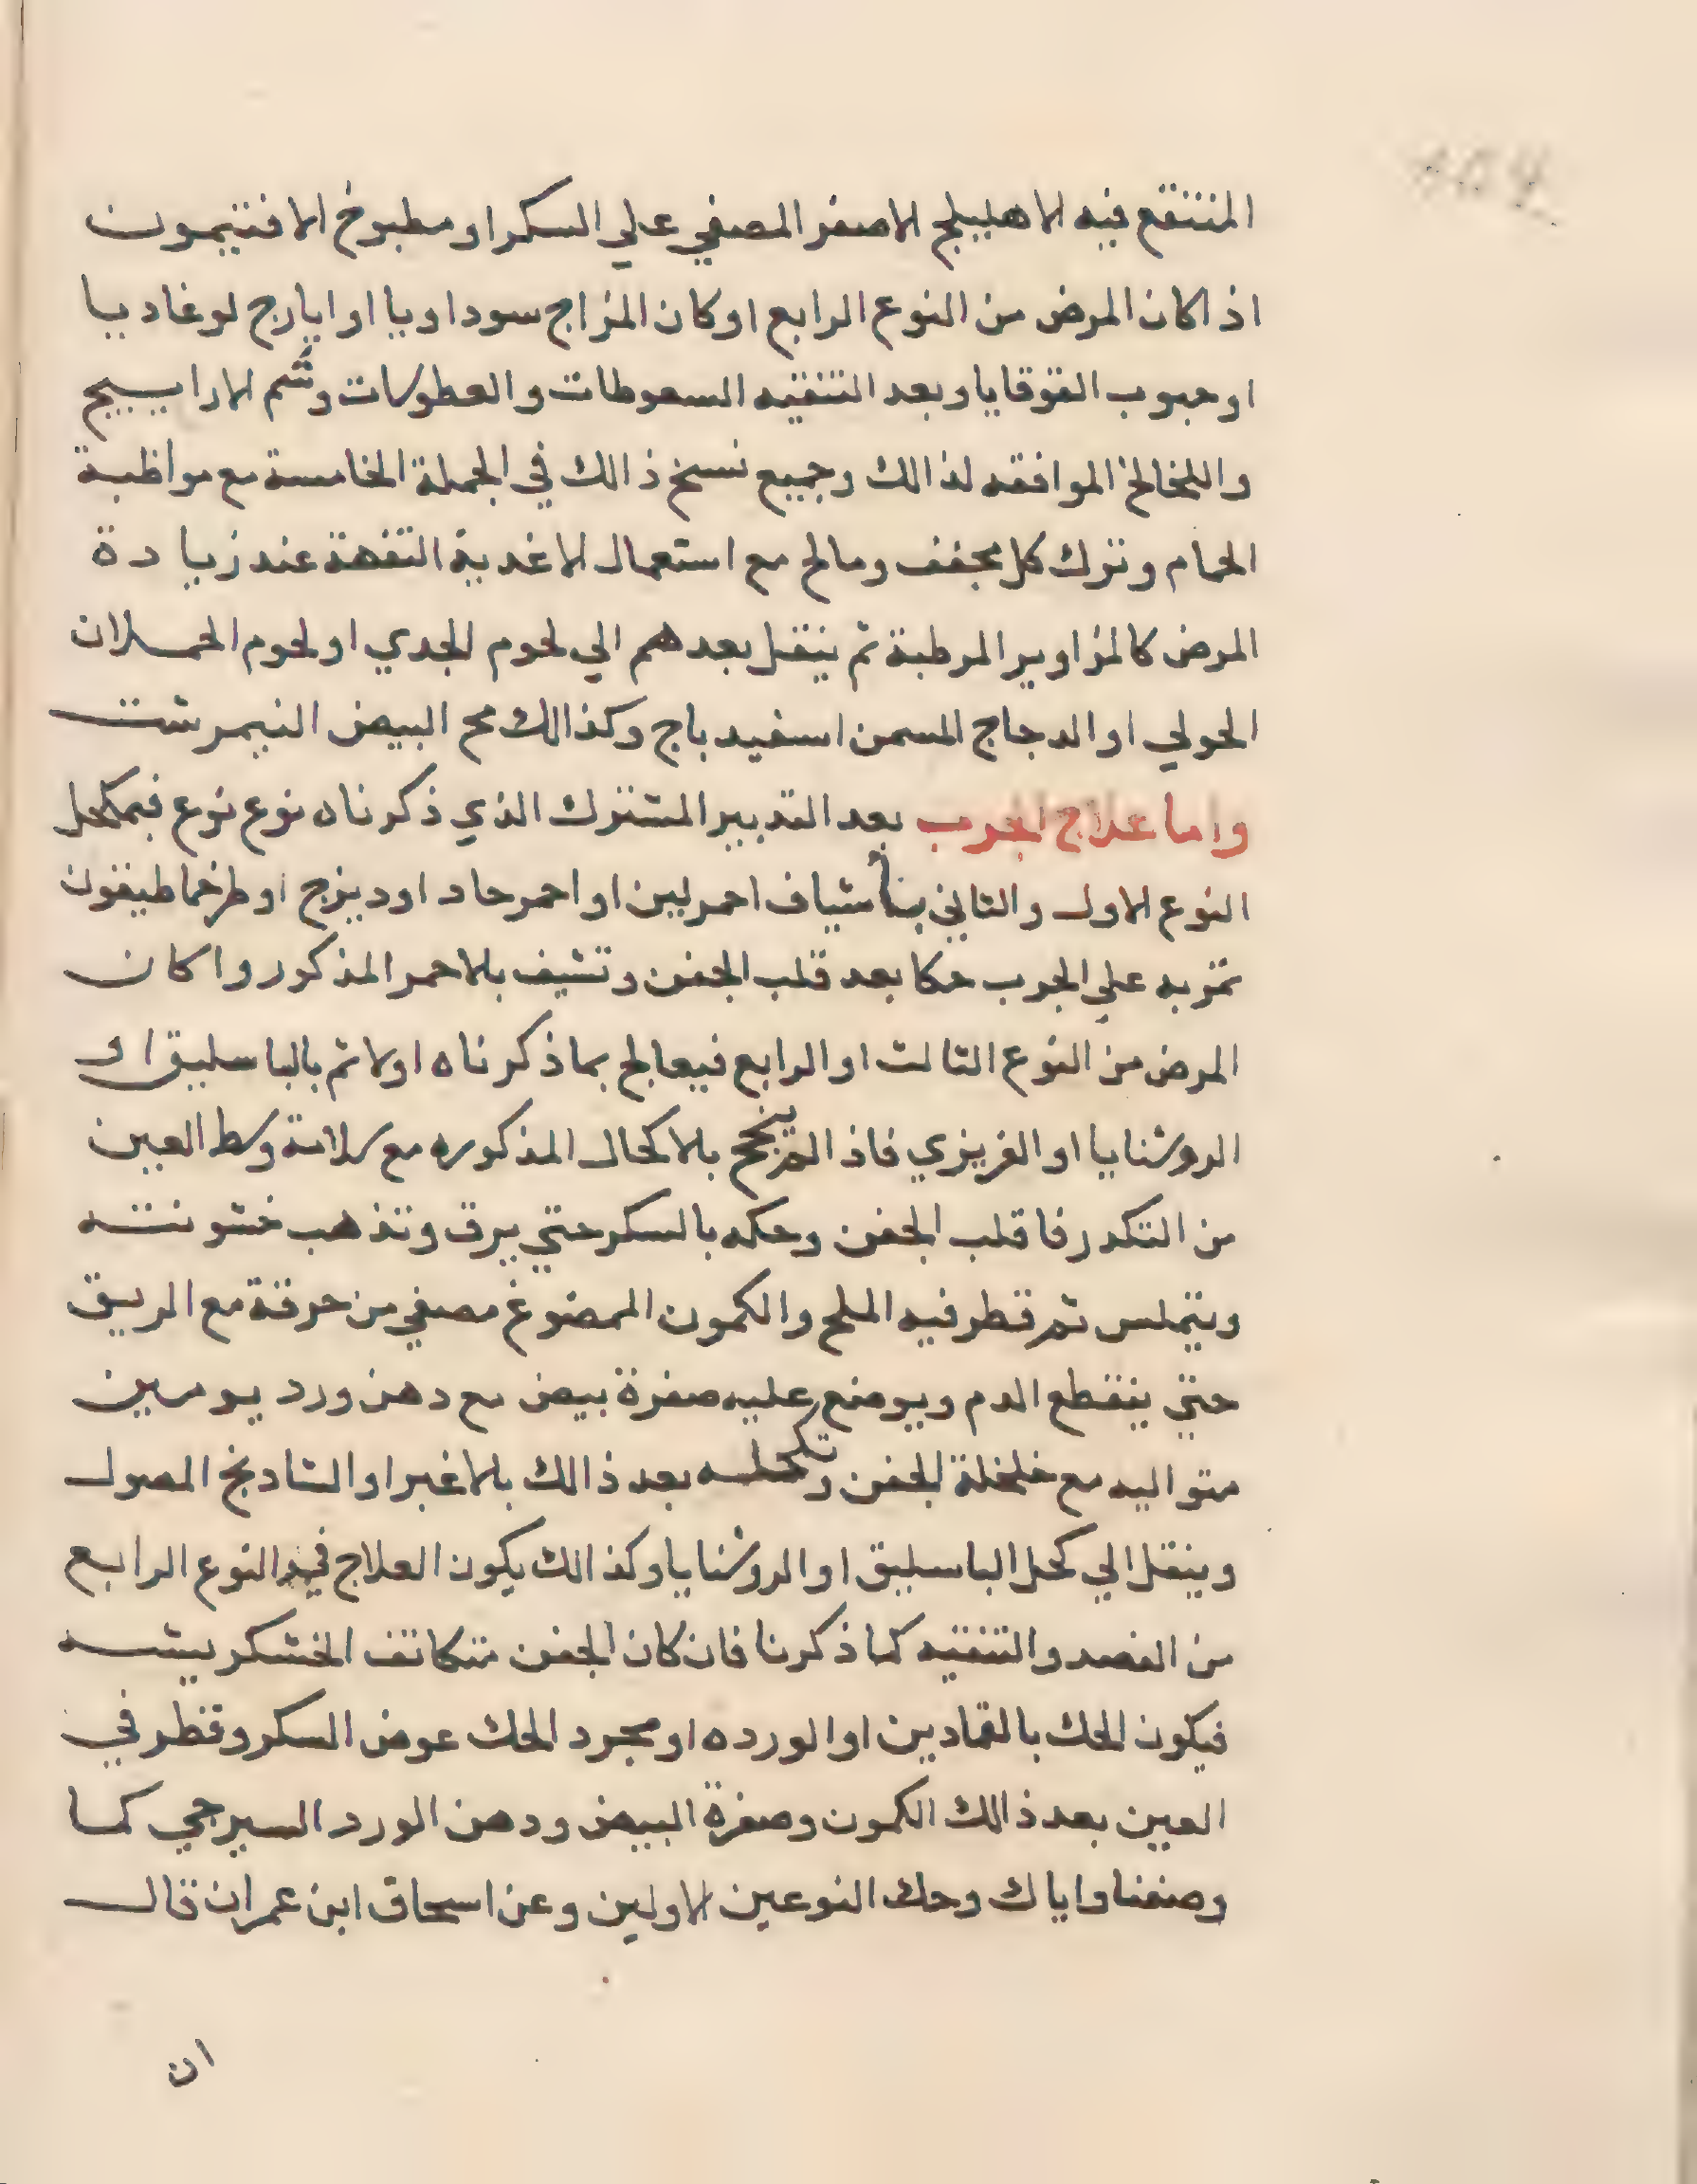 المنتقع فيه الاهليلج الاصفر المصفي علي السكر او مطبوخ الافتيمون
اذا كان المرض من النوع الرابع او كان المزاج سوداويا او ايارج لوغاديا
او حبوب القوقايا وبعد التنقيه السعوطات والعطوسات وشم الاراييج
واللخالخ الموافقه لذالك وجميع نسخ ذالك في الجملة الخامسة مع مواظبة
الحمام وترك كل مجفف ومالح مع استعمال الاغدية التفهة عند زيادة
المرض كالمزاوير المرطبة ثم ينقل بعدهم الي لحوم الجدي او لحوم الحملان
الحولي او الدجاج المسمن اسفيدباج وكذالك مح البيض النيمرشت
واما علاج الجرب بعد التدبير المشترك الذي ذكرناه نوع نوع فيمكحل
النوع الاول والثاني باشياف احمر لين او احمر حاد او ديزج او طرخماطيقون
تمر به علي الجرب حكا بعد قلب الجفن وتشيف بلاحمر المذكور وا كان
المرض من النوع الثالث او الرابع فيعالج بما ذكرناه اولا ثم بالباسليق او
الروشنايا او العزيزي فاذا لم ينجح بلاكحال المذكوره مع سلامة وسط العين
من التكدر فاقلب الجفن وحكه بالسكر حتي يرق وتذهب خشونته
ويتملس ثم قطر فيه الملح والكمون الممضوغ مصفي من خرقة مع الريق
حتي ينقطع الدم ويوضع عليه صفرة بيض مع دهن ورد يومين
متواليه مع خلخلة الجفن وتكحله بعد ذالك بلاغبر او الشادنج المصول
وينقل الي كحل الباسليق او الروشنايا وكذالك يكون العلاج في النوع الرابع
من الفصد والتنقيه كما ذكرنا فان كان الجفن متكاثف الخشكريشه
فيكون الحك بالقمادين او الورده او مجرد الحك عوض السكر وقطر في
العين بعد ذالك الكمون وصفرة البيض ودهن الورد السيرجي كما
وصفنا واياك وحك النوعين الاولين وعن اسحاق ابن عمران قال
ان